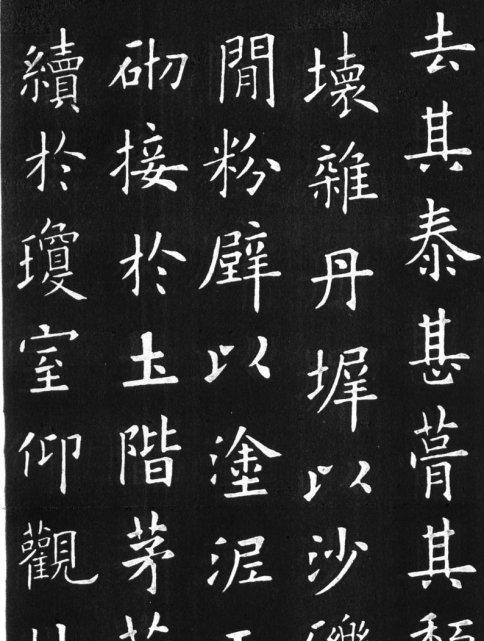 去其泰甚葺其
壞雜丹墀以沙
閒粉壁以塗泥
砌接於土階茅
續於瓊室仰觀